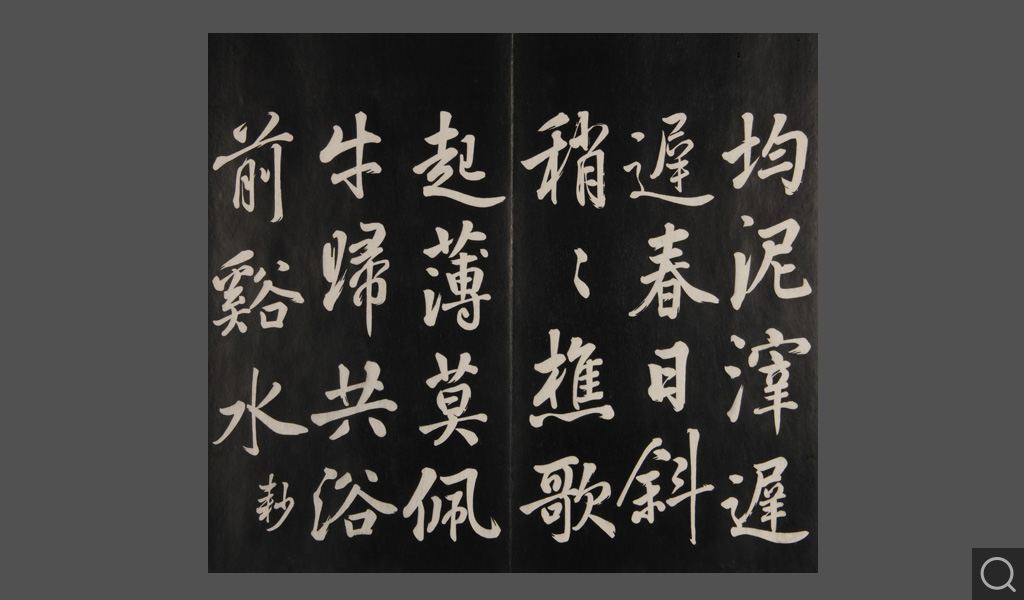 均泥滓遲
遲春日斜
稍〻樵歌
起薄莫佩
牛歸共浴
前谿水